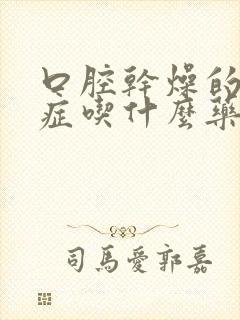 口腔幹燥的
症喫什麼藥
司馬愛郭嘉